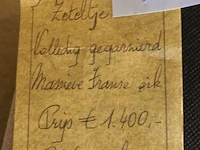 Zeteltje
Volledig gegarnierd
Massieve Franse eik
Prijs € 1.400,-